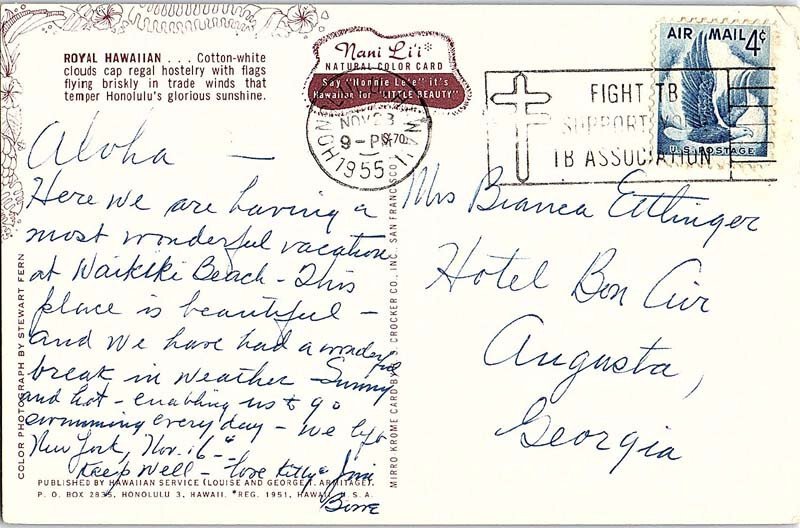 ROYAL HAWAIIAN . . . Cotton-white
clouds cap regal hostelry with flags
flying briskly in trade winds that
temper Honolulu's glorious sunshine.
Nani Li'i*
NATURAL COLOR CARD
Say "Honnie Lee's" it's
Hawaiian for "LITTLE BEAUTY"
HONOLULU, HAWAII
NOV 23
9 - PM
1955
FIGHT TB
SUPPORT YOUR
TB ASSOCIATION
AIR MAIL 4¢
U.S. POSTAGE
Aloha —
Here we are having a
most wonderful vacation
at Waikiki Beach - This
place is beautiful -
and we have had a wonderful
break in weather - Sunny
and hot - enabling us to go
swimming every day - we left
New York, Nov. 16th -
Keep well - love Kitty & Jim
Mrs Bianca Ettlinger
Hotel Bon Air
Augusta,
Georgia
COLOR PHOTOGRAPH BY STEWART FERN
MIRRO KROME CARD BY H. S. CROCKER CO., INC. SAN FRANCISCO
PUBLISHED BY HAWAIIAN SERVICE (LOUISE AND GEORGE T. ARMITAGE).
P. O. BOX 2835, HONOLULU 3, HAWAII. *REG. 1951, HAWAII, U.S.A.